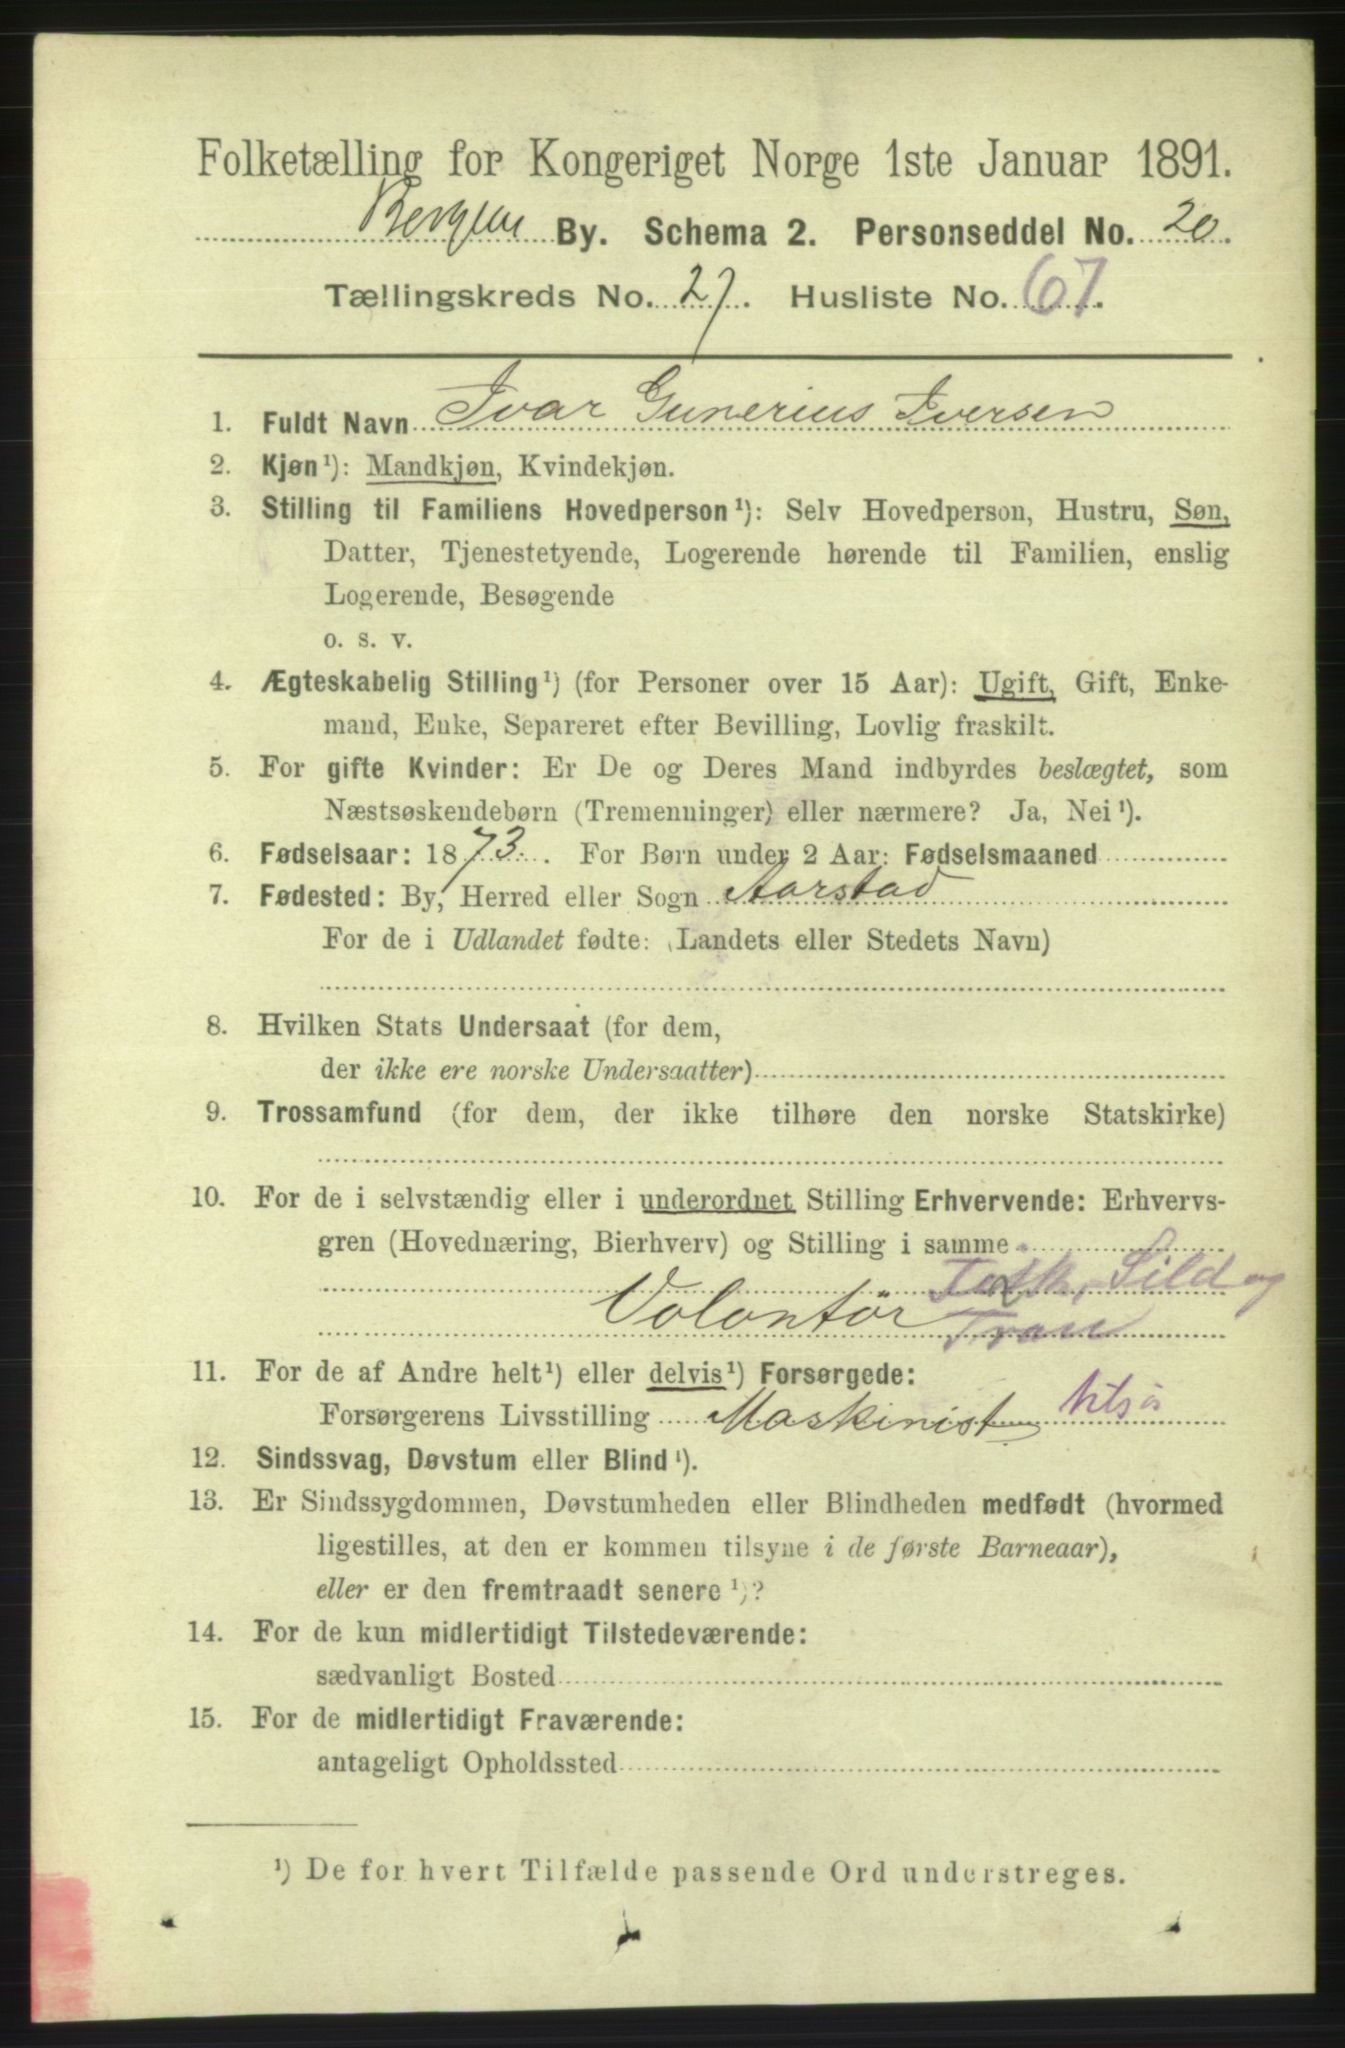 Folketælling for Kongeriget Norge 1ste Januar 1891.
Bergen By. Schema 2. Personseddel No. 20.
Tællingskreds No. 27. Husliste No. 67.
1. Fuldt Navn Ivar Gunerius Iversen
2. Kjøn¹): Mandkjøn, Kvindekjøn.
3. Stilling til Familiens Hovedperson¹): Selv Hovedperson, Hustru, Søn,
Datter, Tjenestetyende, Logerende hørende til Familien, enslig
Logerende, Besøgende
o. s. v.
4. Ægteskabelig Stilling¹) (for Personer over 15 Aar): Ugift, Gift, Enke-
mand, Enke, Separeret efter Bevilling, Lovlig fraskilt.
5. For gifte Kvinder: Er De og Deres Mand indbyrdes beslægtet, som
Næstsøskendebørn (Tremenninger) eller nærmere? Ja, Nei¹).
6. Fødselsaar: 1873. For Børn under 2 Aar: Fødselsmaaned
7. Fødested: By, Herred eller Sogn Aarstad
For de i Udlandet fødte: (Landets eller Stedets Navn)
8. Hvilken Stats Undersaat (for dem,
der ikke ere norske Undersaatter)
9. Trossamfund (for dem, der ikke tilhøre den norske Statskirke)
10. For de i selvstændig eller i underordnet Stilling Erhvervende: Erhvervs-
gren (Hovednæring, Bierhverv) og Stilling i samme
Sild og
Volontør Tran
11. For de af Andre helt¹) eller delvis¹) Forsørgede:
Forsørgerens Livsstilling Maskinist
12. Sindssvag, Døvstum eller Blind¹).
13. Er Sindssygdommen, Døvstumheden eller Blindheden medfødt (hvormed
ligestilles, at den er kommen tilsyne i de første Barneaar),
eller er den fremtraadt senere¹)?
14. For de kun midlertidigt Tilstedeværende:
sædvanligt Bosted
15. For de midlertidigt Fraværende:
antageligt Opholdssted
¹) De for hvert Tilfælde passende Ord understreges.